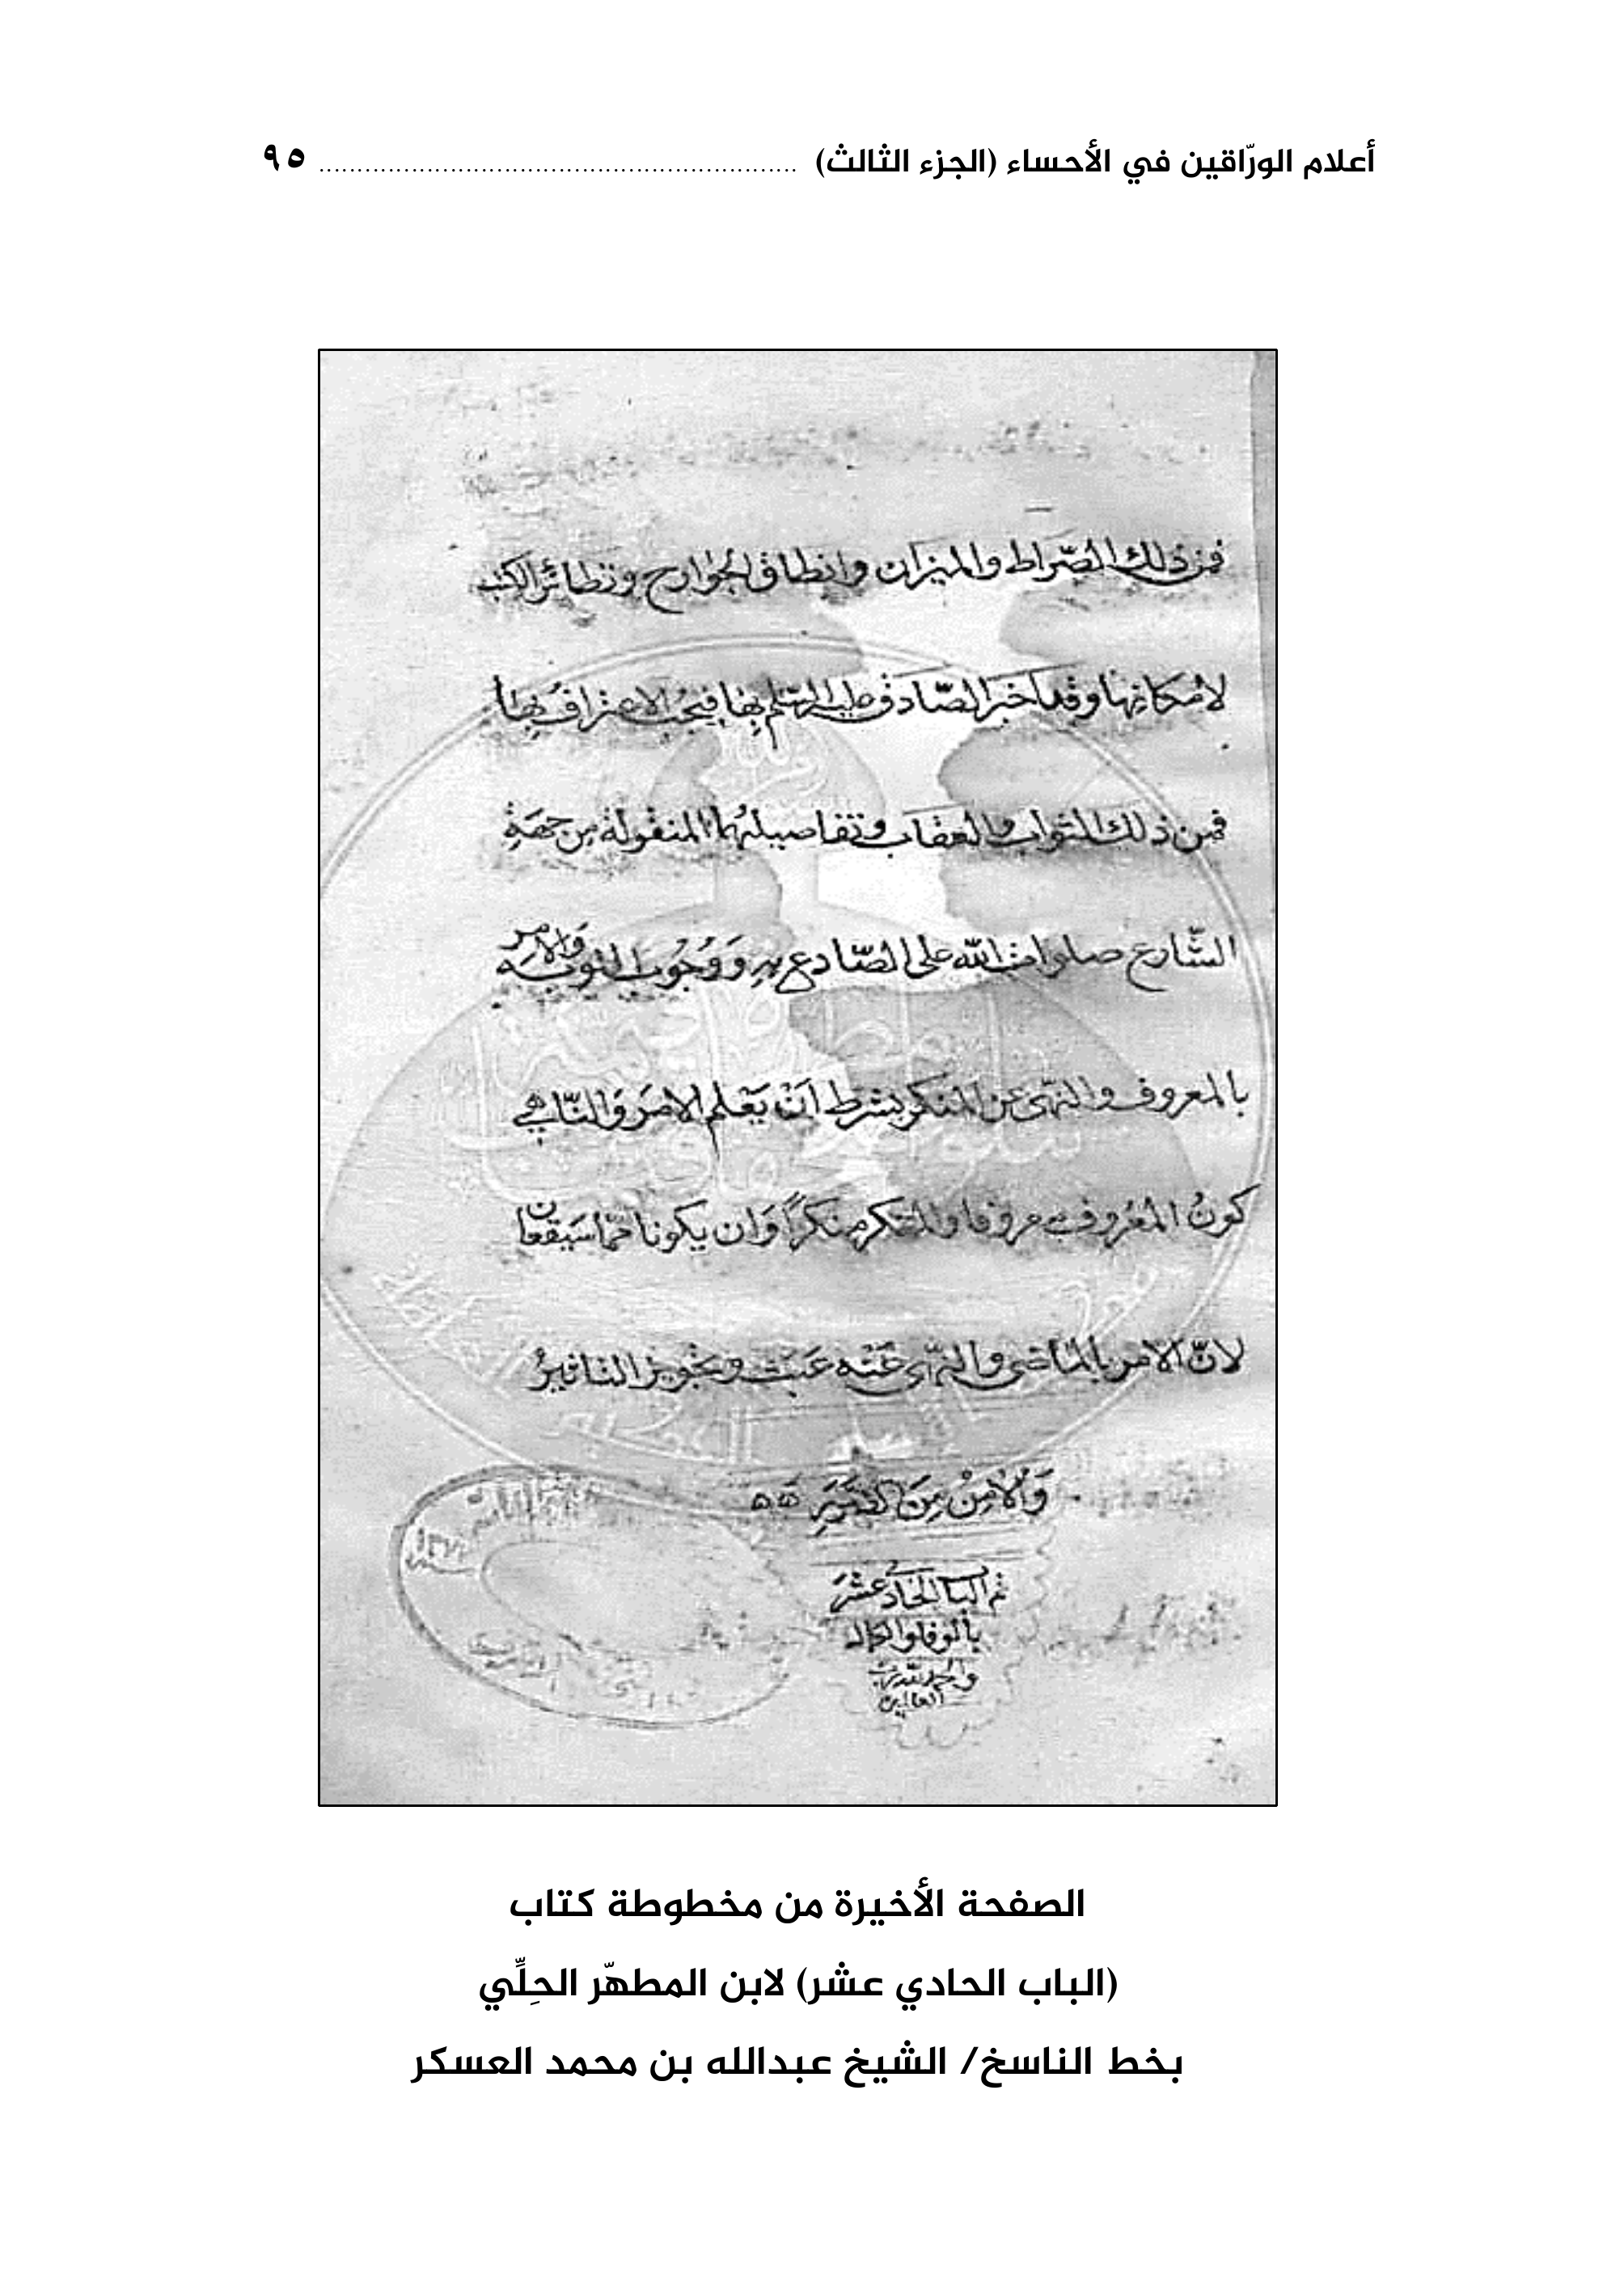 أعلام الورّاقين في الأحساء (الجزء الثالث) ........................................................ ٩٥
فمن ذلك الصّراط والميزان وانطاق الجوارح وتطائر الكتب
لامكانها وقد اخبر الصّادق عليه السّلم بها فيجب الاعتراف بها
فمن ذلك الثواب والعقاب وتفاصيلهما المنقولة من جهةِ
الشّارع صلوات الله على الصّادع به وَوُجُوب التوبه والامر
بالمعروف والنهّى عن المنكر بشرط اَنْ يَعْلم الامرَ وَالنّاهي
كونُ المعُروف معروفا والمنكر منكراً وَان يكونا ممّا سَيَقعان
لانّ الامر بالماضى والنهّى عَنْه عَبَث وتجويز التاثيرُ
وَالامنْ مِنَ الضّرَرِ
تم الباب الحادي عشَر
بالوفا والكمال
والحمد لله رب
العالمين
الصفحة الأخيرة من مخطوطة كتاب
(الباب الحادي عشر) لابن المطهّر الحِلِّي
بخط الناسخ/ الشيخ عبدالله بن محمد العسكر